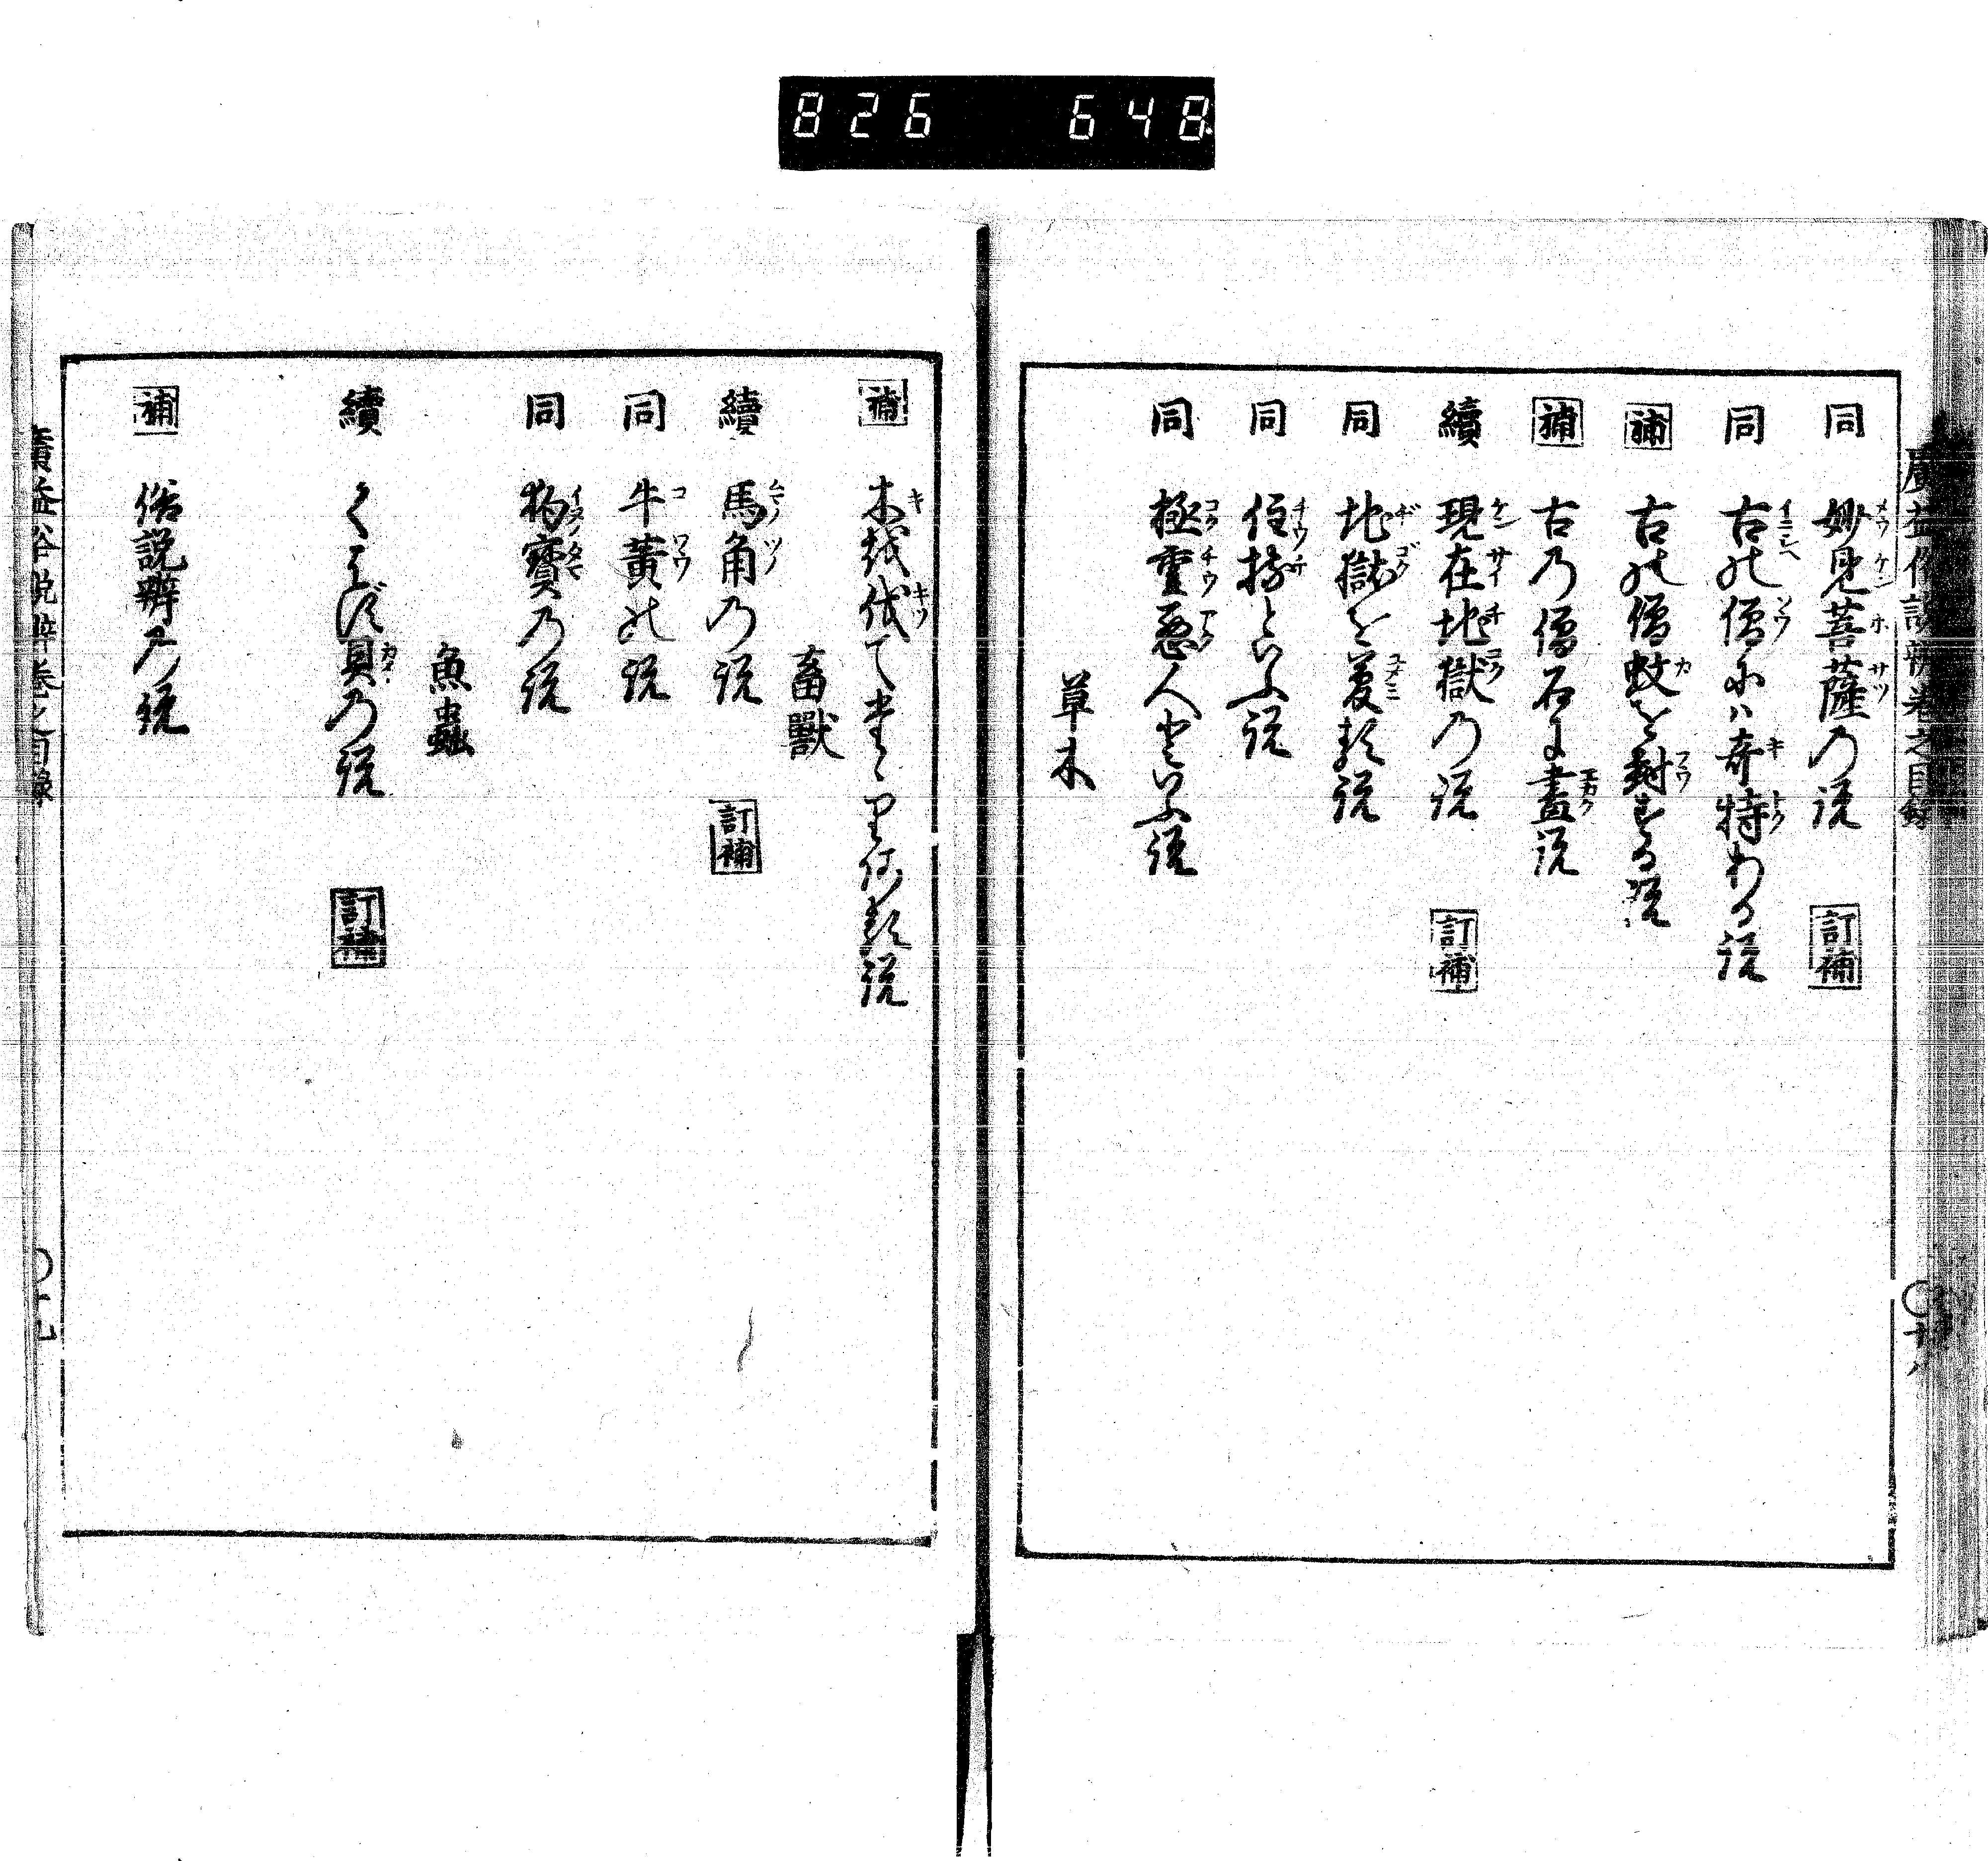 826 648
廣益俗説辨卷之目録
同 妙見菩薩の説 訂補
同 古の僧には奇特ある説
補 古の僧蚊を封ずる説
補 古の僧石に畫説
續 現在地獄の説 訂補
同 地獄を夢みる説
同 住持といふ説
同 極重悪人といふ説
草木
補 木を伐て
畜獸
續 馬角の説 訂補
同 牛黄の説
同 狗寶の説
魚蟲
續 貝の説 訂補
補 俗説辨乃説
廣益俗説辨卷之目録
〇十九